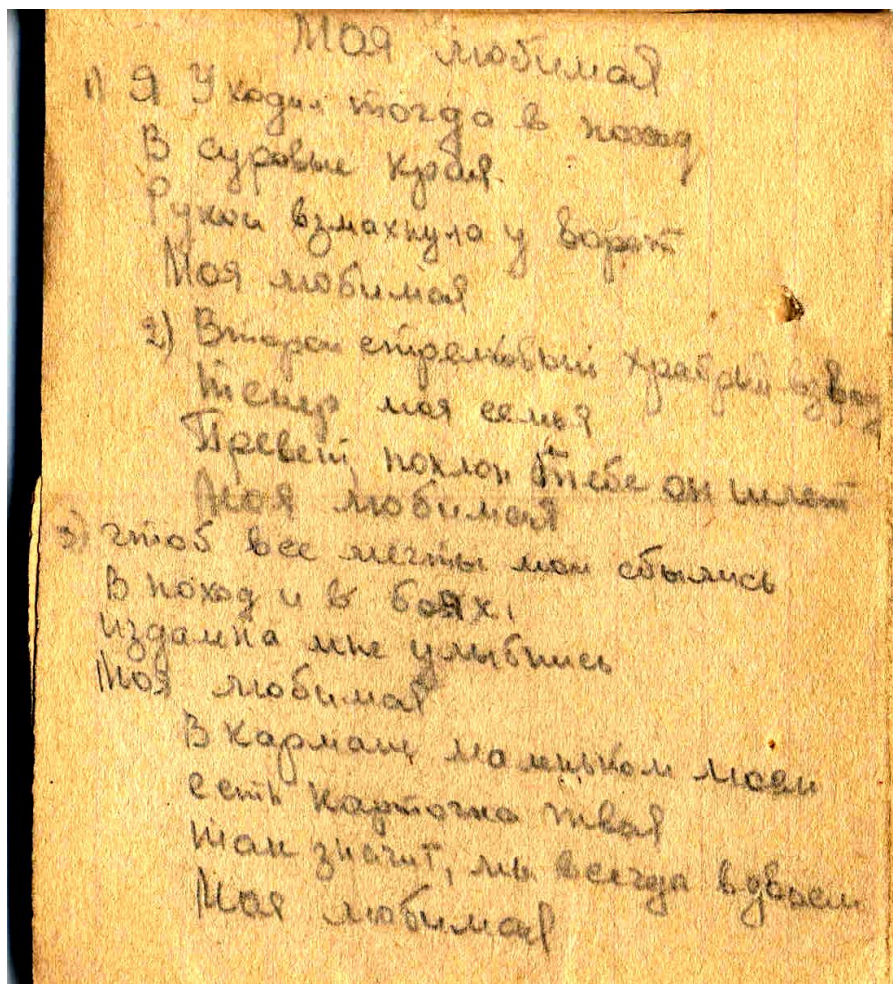 Моя любимая
1) Я Уходил тогда в поход
В суровые края.
Рукой взмахнула у ворот
Моя любимая
2) Второй стрелковый храбрый взвод
Тепер моя семья
Превет, поклон тебе он шлет
Моя любимая
3) чтоб все мечты мои сбылись
В поход и в боях,
издалика мне улыбнись
Моя любимая
В кармане маленьком моем
есть карточка твоя
так значит, мы всегда вдвоем
Моя любимая